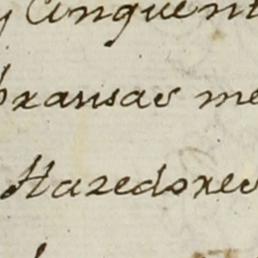 y Cinquent
bransas me
Hazedores